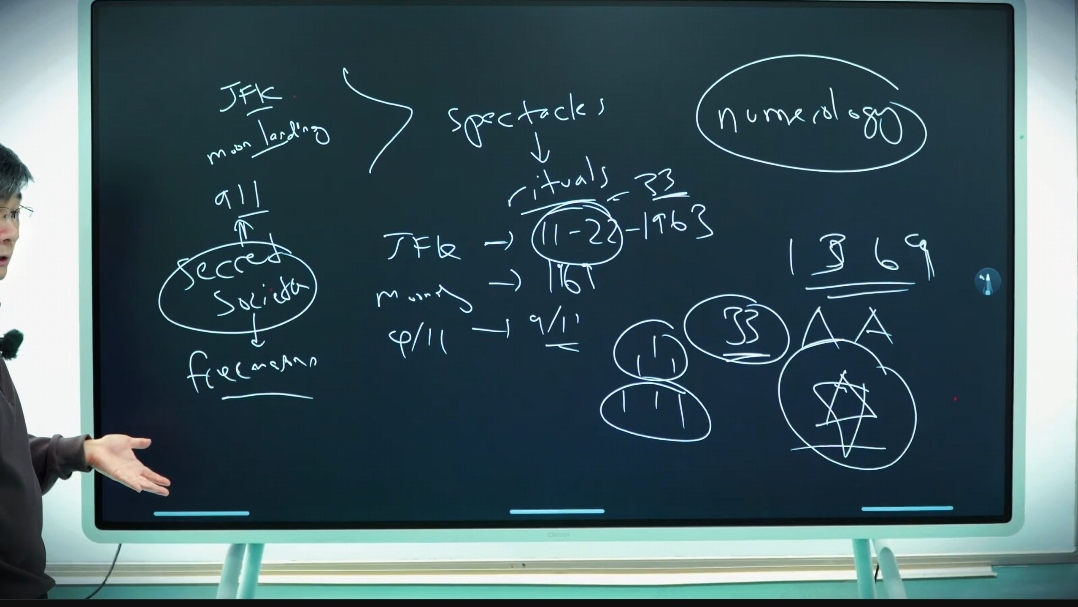 JFK
moon landing
911
Secret
Societa
freemason
spectacles
rituals
33
JFK → 11-22-1963
→ 1161
9/11 → 9/11
numerology
1369
33